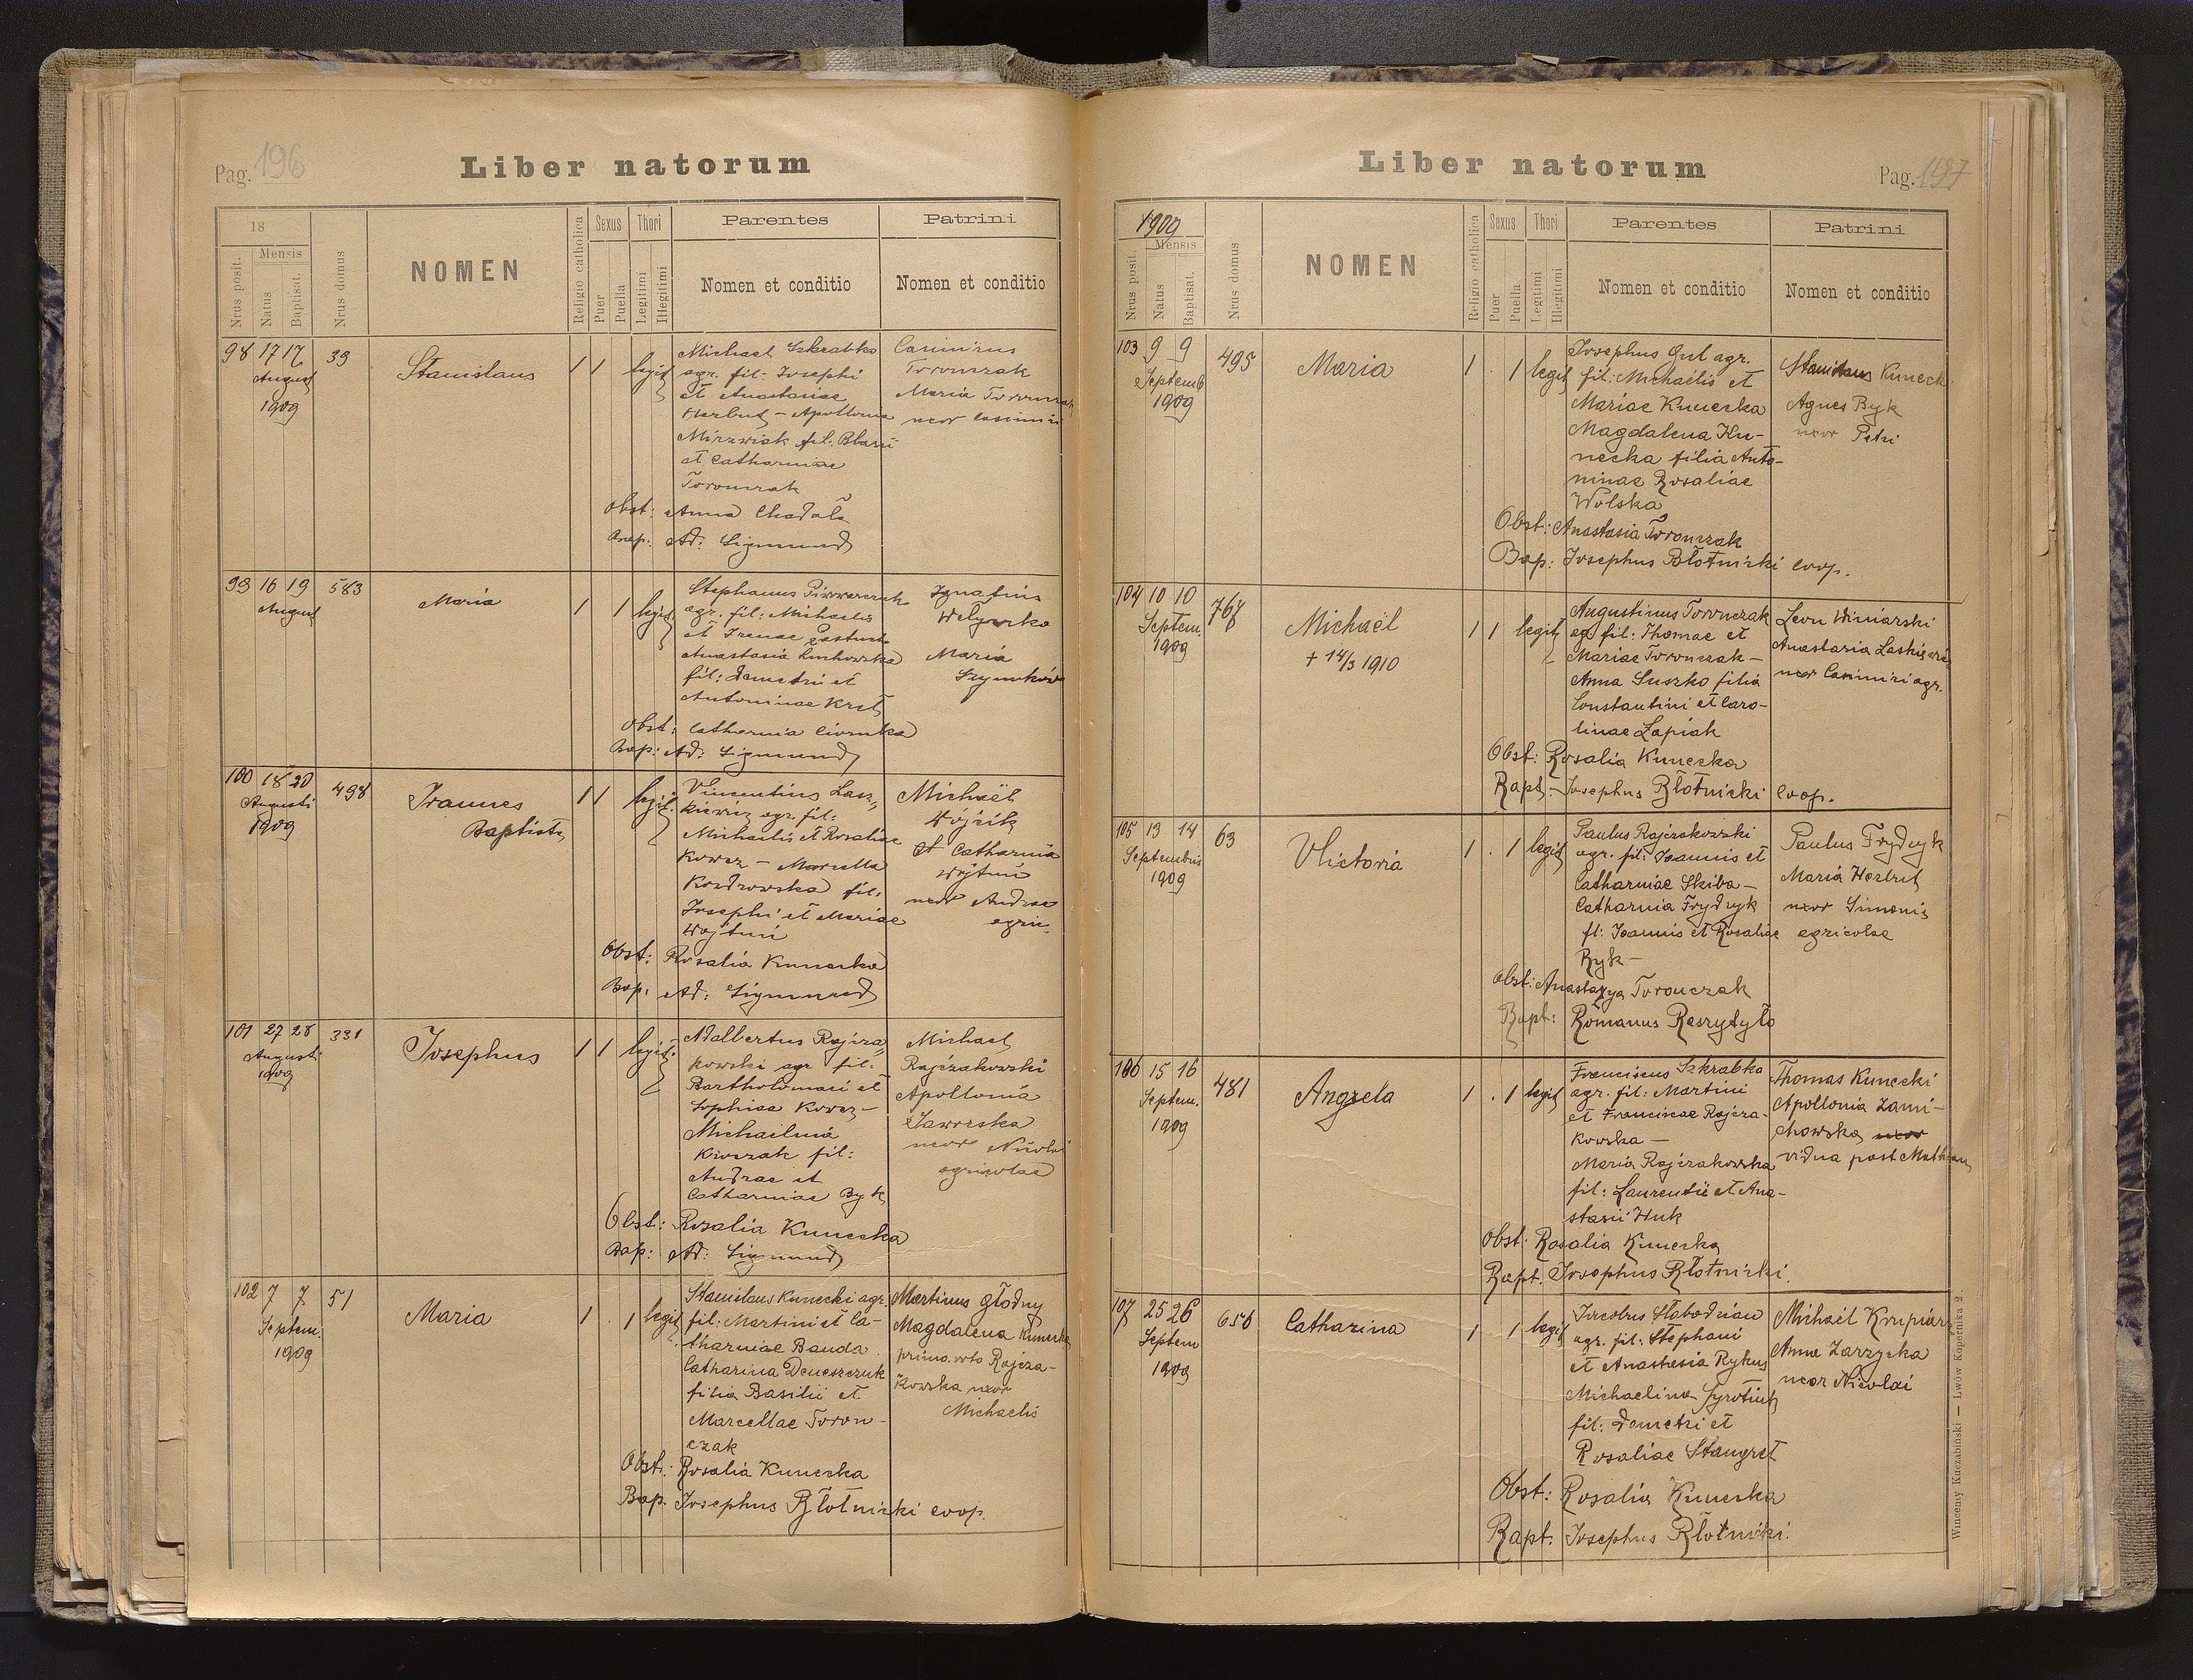 Pag. 196
Liber natorum
18
Nrus posit.
Mensis
Natus
Baptisat.
Nrus domus
NOMEN
Religio catholica
Sexus
Puer
Puella
Thori
Legitimi
Illegitimi
Parentes
Nomen et conditio
Patrini
Nomen et conditio
98 17 17 39
August
1909
Stanislaus
1 1 legit
Michael Szkrabko
agr. fil: Josephi
et Anastasiae
Herbut – Apollonia
fil. Blasii
et Catharinae
Toronczak
Casimirus
Toronczak
Maria Toronczak
uxor Casimiri
Obst: Anna Chadała
Bap: Ad: Sigmund
99 16 19 583
August
Maria
1 1 legit
Stephanus
agr. fil: Michaelis
et Irenae Pastuch
Anastasia
fil: Demetrii et
Antoninae
Ignatius
Maria
Obst: Catharina
Bap: Ad: Sigmund
100 18 20 498
Augusti
1909
Joannes
Baptista
1 1 legit
Vincentius Lasz„
kiewicz agr. fil:
Michaelis et Rosaliae
Kowcz – Marcella
fil:
Josephi et Mariae
Wojtuń
Michaël
Wójcik
et Catharina
Wójtuń
uxor Andreae
agric.
Obst: Rosalia Kunecka
Bap: Ad: Sigmund
101 27 28 331
Augusti
1909
Josephus
1 1 legit
Adalbertus Rajcza„
kowski agr fil:
Bartholomaei et
Sophiae Kowcz –
Michailina
fil:
Andreae et
Catharinae Byk
Michael
Rajczakowski
Apollonia
Jaworska
uxor Nicolai
agricolae
Obst: Rosalia Kunecka
Bap: Ad: Sigmund
102 7 7 51
Septem.
1909
Maria
1 . 1 legit
Stanislaus Kunecki agr.
fil: Martini et Ca-
tharinae Banda
Catharina Deneszczuk
filia Basilii et
Marcellae Toron-
czak
Martinus Głodny
Magdalena Kunecka
primo voto Rajcza-
kowska uxor
Michaelis
Obst: Rosalia Kunecka
Bap. Josephus Błotnicki coop.
Liber natorum
Pag. 197
1909
Nrus posit.
Mensis
Natus
Baptisat.
Nrus domus
NOMEN
Religio catholica
Sexus
Puer
Puella
Thori
Legitimi
Illegitimi
Parentes
Nomen et conditio
Patrini
Nomen et conditio
103 9 9 495
Septemb
1909
Maria
1 . 1 legit
Josephus Gul agr.
fil: Michailis et
Mariae Kunecka
Magdalena Ku-
necka filia Anto-
ninae Rosaliae
Wolska
Stanislaus Kunecki
Agnes Byk
uxor Petri
Obst: Anastasia Toronczak
Bap: Josephus Błotnicki coop.
104 10 10 767
Septem.
1909
Michaël
+ 14/3 1910
1 1 legit
Augustinus Toronczak
ag. fil: Thomae et
Mariae Toronczak –
Anna Suszko filia
Constantini et Caro-
linae Łapiak
Leon Winiarski
Anastasia Laskiewicz
uxor Casimiri agr.
Obst: Rosalia Kunecka
Bapt – Josephus Błotnicki coop.
105 13 14 63
Septembris
1909
Victoria
1 . 1 legit
Paulus Rajczakowski
agr. fil: Joannis et
Catharinae Skiba –
Catharina Frydryk
fl: Joannis et Rosaliae
Byk –
Paulus Frydryk
Maria Herbut
uxor Simonis
agricolae
Obst: Anastazya Toronczak
Bapt: Romanus Reszytyło
106 15 16 481
Septem.
1909
Angela
1 . 1 legit
Franciscus Szkrabka
agr. fil: Martini
et Franciscae Rajcza-
kowska –
Maria Rajczakowska
fil: Laurentii et Ana-
stasii Huk
Thomas Kunecki
Apollonia Zami-
chowska uxor
vidua post
Obst: Rosalia Kunecka
Bapt. Josephus Błotnicki.
107 25 26 656
Septem
1909
Catharina
1 1 legit
Jacobus Słabodnian
agr. fil: Stephani
et Anastasia Rykus
Michaelina Syrotiuk
fil: Demetri et
Rosaliae Stangret
Michaël Krupiarz
Anna Zarzycka
uxor Nicolai
Obst: Rosalia Kunecka
Bapt: Josephus Błotnicki.
Wincenty Kuczabiński — Lwów Kopernika 2.